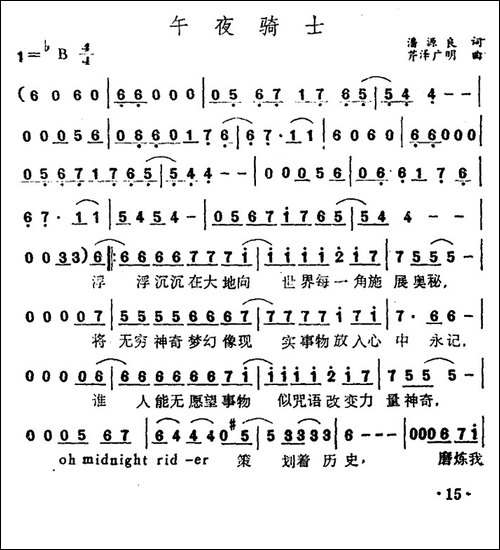 午夜骑士
1=♭B 4/4
潘源良 词
芹泽广明 曲
(6 0 6 0 | 6 6 0 0 0 | 0 5 6 7 1 7 6 5 | 5 4 4 - - |
0 0 0 5 6 | 0 6 6 0 1 7 6 | 6 7 · 1 1 | 6 0 6 0 | 6 6 0 0 0 |
0 5 6 7 1 7 6 5 | 5 4 4 - - | 0 0 0 5 6 | 0 6 6 1 7 6 |
6 7 · 1 1 | 5 4 5 4 - | 0 5 6 7 1 7 6 5 | 5 4 4 - - |
0 0 3 3) 6 |: 6 6 6 6 7 7 7 i | i i i i 2 i 7 | 7 5 5 5 - |
浮 浮沉沉在大地向 世界每一角施 展奥秘,
0 0 0 0 7 | 6 6 6 6 7 7 7 i | i i i i 2 i 7 | 7 · 6 6 - |
将 无穷神奇梦幻像现 实事物放入心 中 永记,
0 0 0 0 6 | 6 6 6 6 7 7 7 i | i i i i 2 i 7 | 7 5 5 5 - |
谁 人能无愿望事物 似咒语改变力 量神奇,
0 0 0 5 6 7 | 6 4 4 4 0 #5 | 5 3 3 3 3 | 6 - - | 0 0 0 6 7 i |
oh midnight rid -er 策 划着 历 史, 磨炼我
· 15 ·